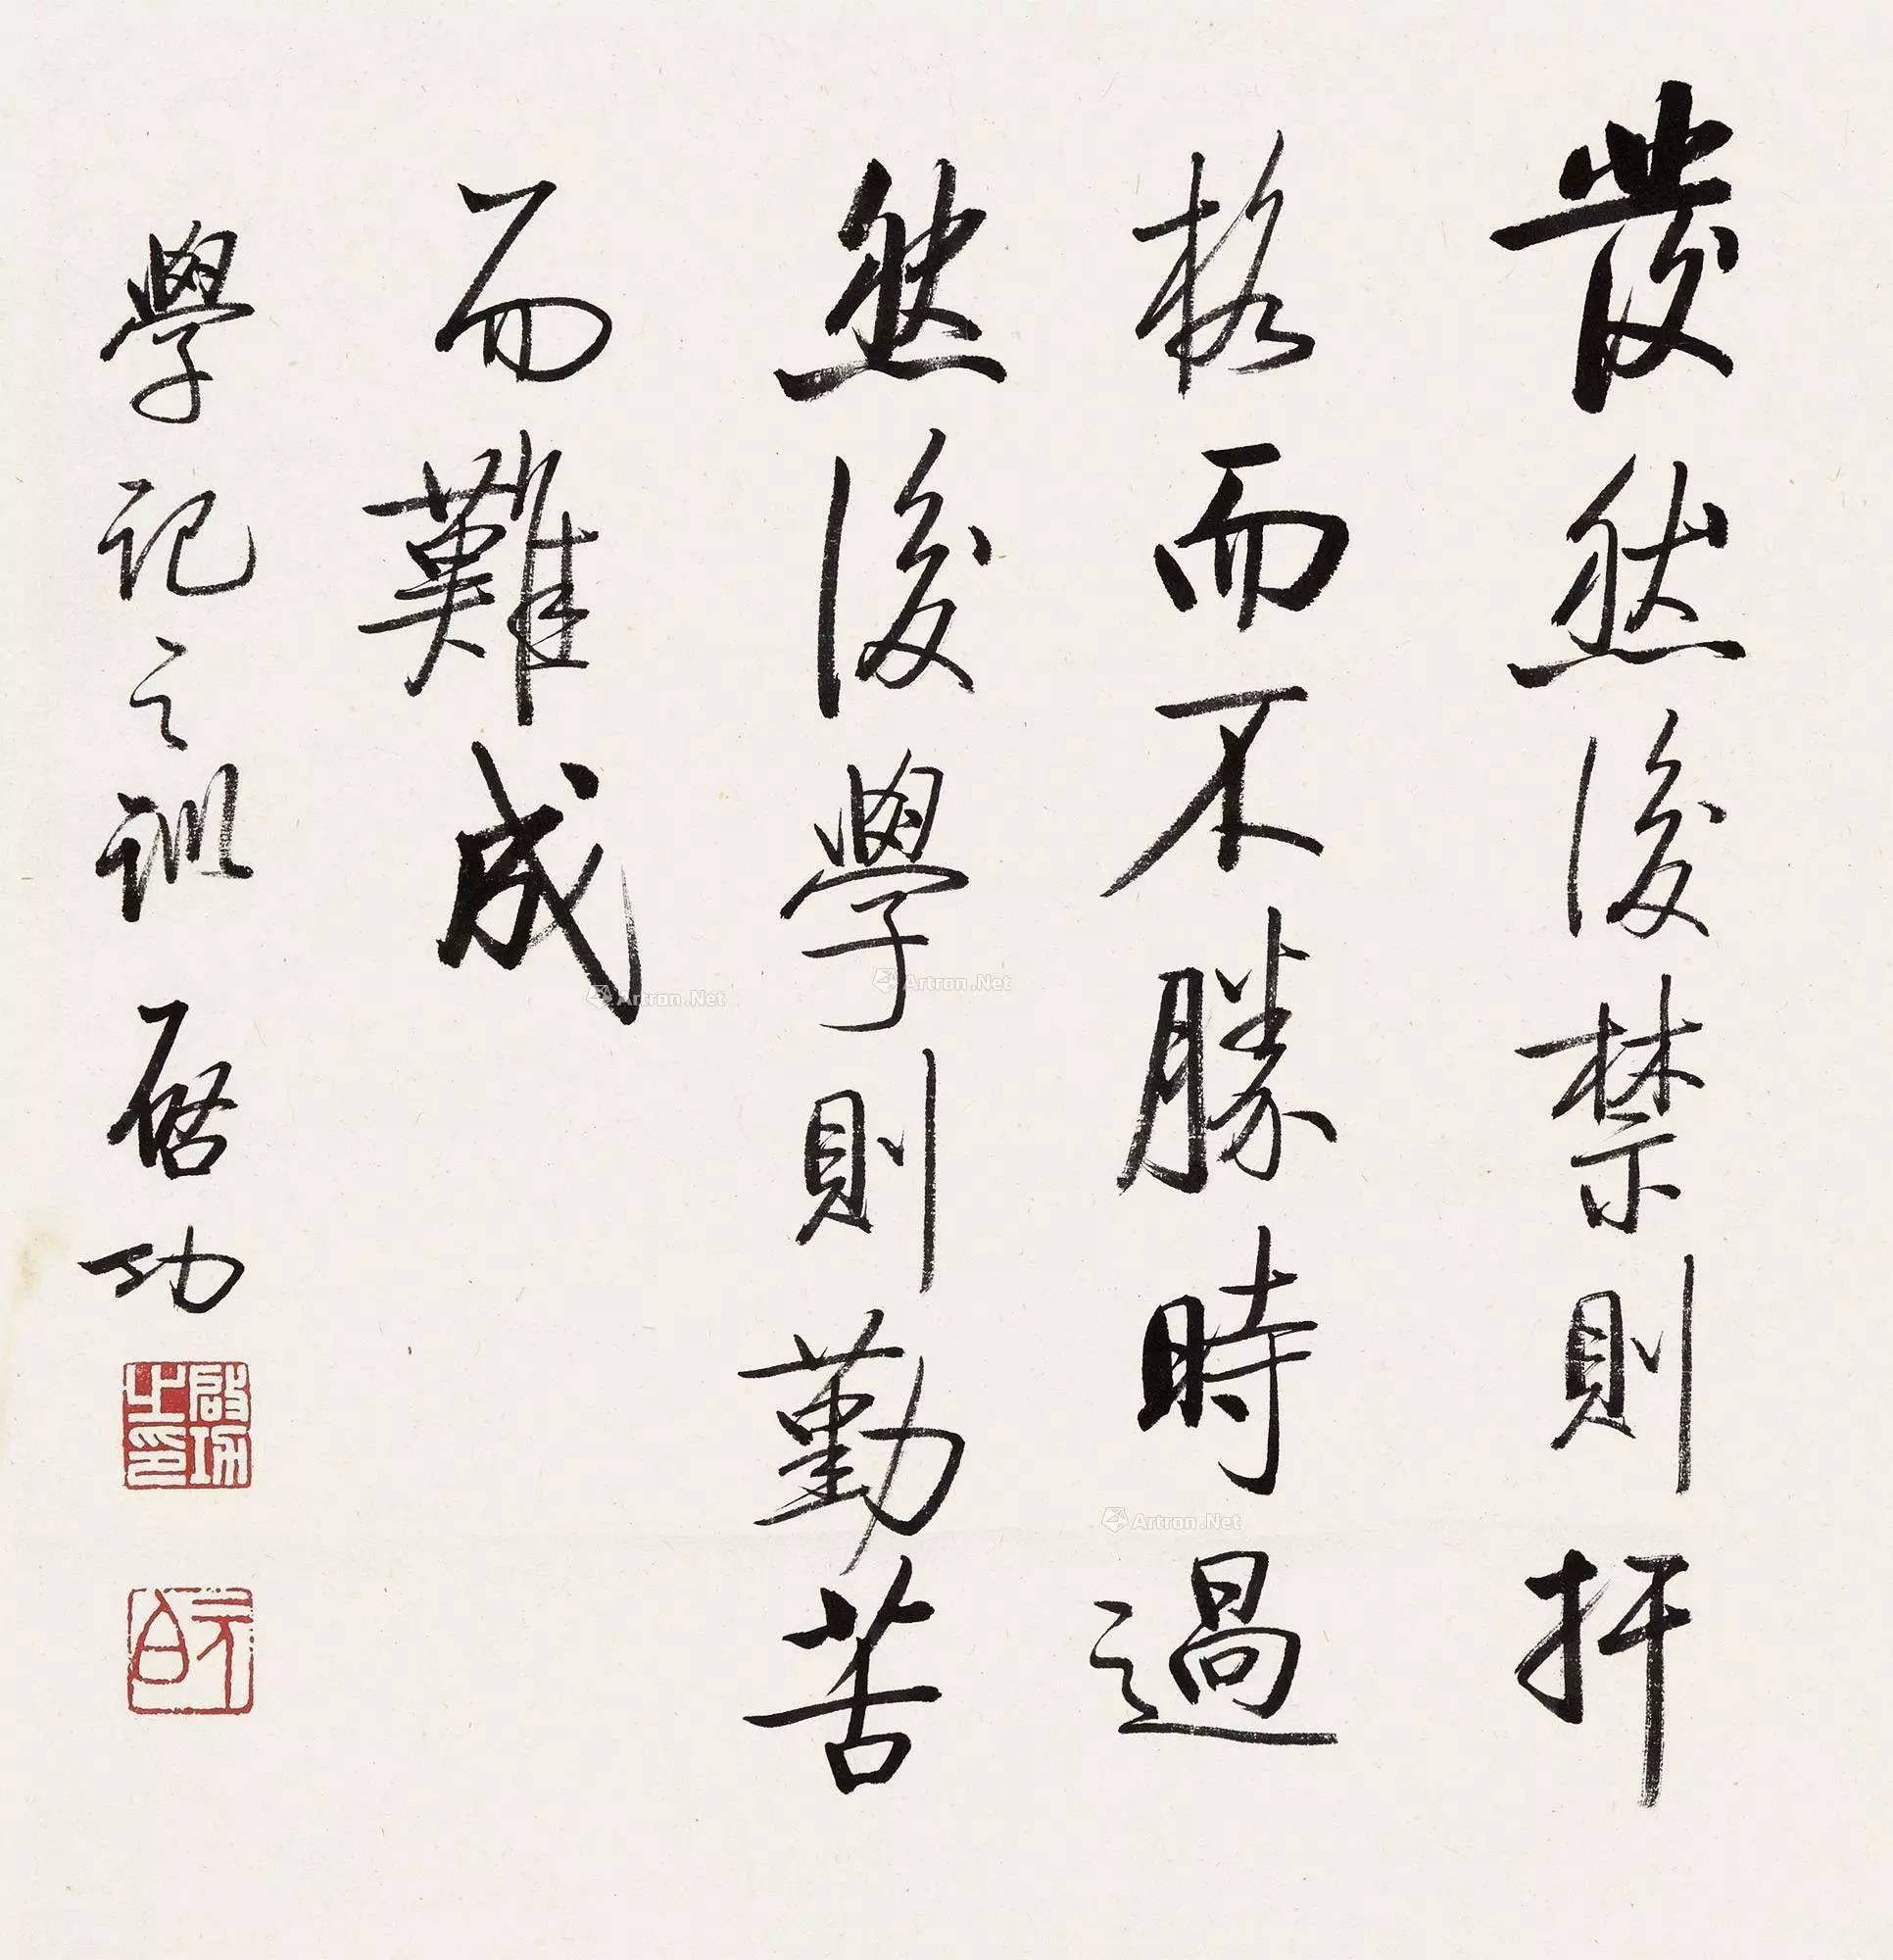 發然後禁則扞
格而不勝時過
然後學則勤苦
而難成
學記之訓 启功
啟功之印
元白
Artron.Net
Artron.Net
Artron.Net